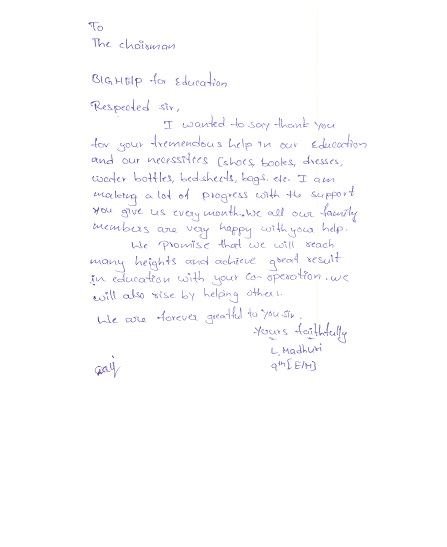 To
The chairman
BIG HELP for Education
Respected sir,
I wanted to say thank you
for your tremendous help in our Education
and our necessities (shoes, books, dresses,
water bottles, bedsheets, bags. etc. I am
making a lot of progress with the support
you give us every month. We all our family
members are very happy with your help.
We Promise that we will reach
many heights and achieve great result
in education with your co-operation. we
will also rise by helping others.
We are forever greatful to you sir.
Yours faithfully
L. Madhuri
9th [E/M]